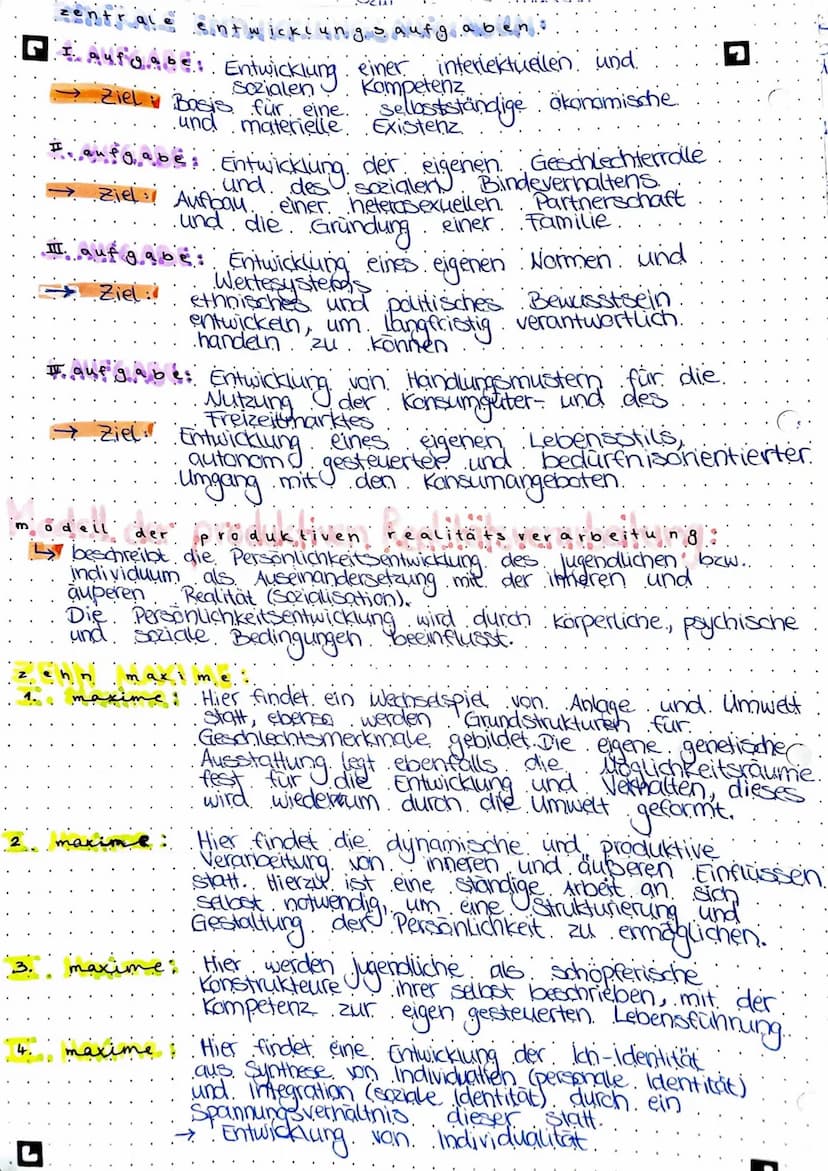 zentrale entwicklungsaufgaben:
I. aufgabe: Entwicklung einer interlektuellen und
sozialen Kompetenz
→ Ziel: Basis für eine selbstständige ökonomische
und materielle Existenz
II. aufgabe: Entwicklung der eigenen Geschlechterrolle
und des sozialen Bindeverhaltens
→ Ziel: Aufbau einer heterosexuellen Partnerschaft
und die Gründung einer Familie
III. aufgabe: Entwicklung eines eigenen Normen und
Wertesystems
→ Ziel: ethnisches und politisches Bewusstsein
entwickeln, um langfristig verantwortlich
handeln zu können
IV. aufgabe: Entwicklung von Handlungsmustern für die
Nutzung der Konsumgüter- und des
Freizeitmarktes
→ Ziel: Entwicklung eines eigenen Lebensstils,
autonom gesteuerter und bedürfnisorientierter
Umgang mit den Konsumangeboten.
modell der produktiven realitätsverarbeitung:
↳ beschreibt die Persönlichkeitsentwicklung des Jugendlichen bzw.
individuum als Auseinandersetzung mit der inneren und
äußeren Realität (Sozialisation).
Die Persönlichkeitsentwicklung wird durch körperliche, psychische
und soziale Bedingungen beeinflusst.
zehn maxime:
1. maxime: Hier findet ein Wechselspiel von Anlage und Umwelt
statt, ebenso werden Grundstrukturen für
Geschlechtsmerkmale gebildet. Die eigene genetische
Ausstattung legt ebenfalls die Möglichkeitsräume
fest für die Entwicklung und Verhalten, dieses
wird wiederum durch die Umwelt geformt.
2. maxime: Hier findet die dynamische und produktive
Verarbeitung von inneren und äußeren Einflüssen
statt. Hierzu ist eine ständige Arbeit an sich
selbst notwendig, um eine Strukturierung und
Gestaltung der Persönlichkeit zu ermöglichen.
3. maxime: Hier werden Jugendliche als schöpferische
Konstrukteure ihrer selbst beschrieben, mit der
Kompetenz zur eigen gesteuerten Lebensführung.
4. maxime: Hier findet eine Entwicklung der Ich-Identität
aus Synthese von Individuatien (personale Identität)
und Integration (soziale Identität) durch ein
Spannungsverhältnis dieser statt.
→ Entwicklung von Individualität.